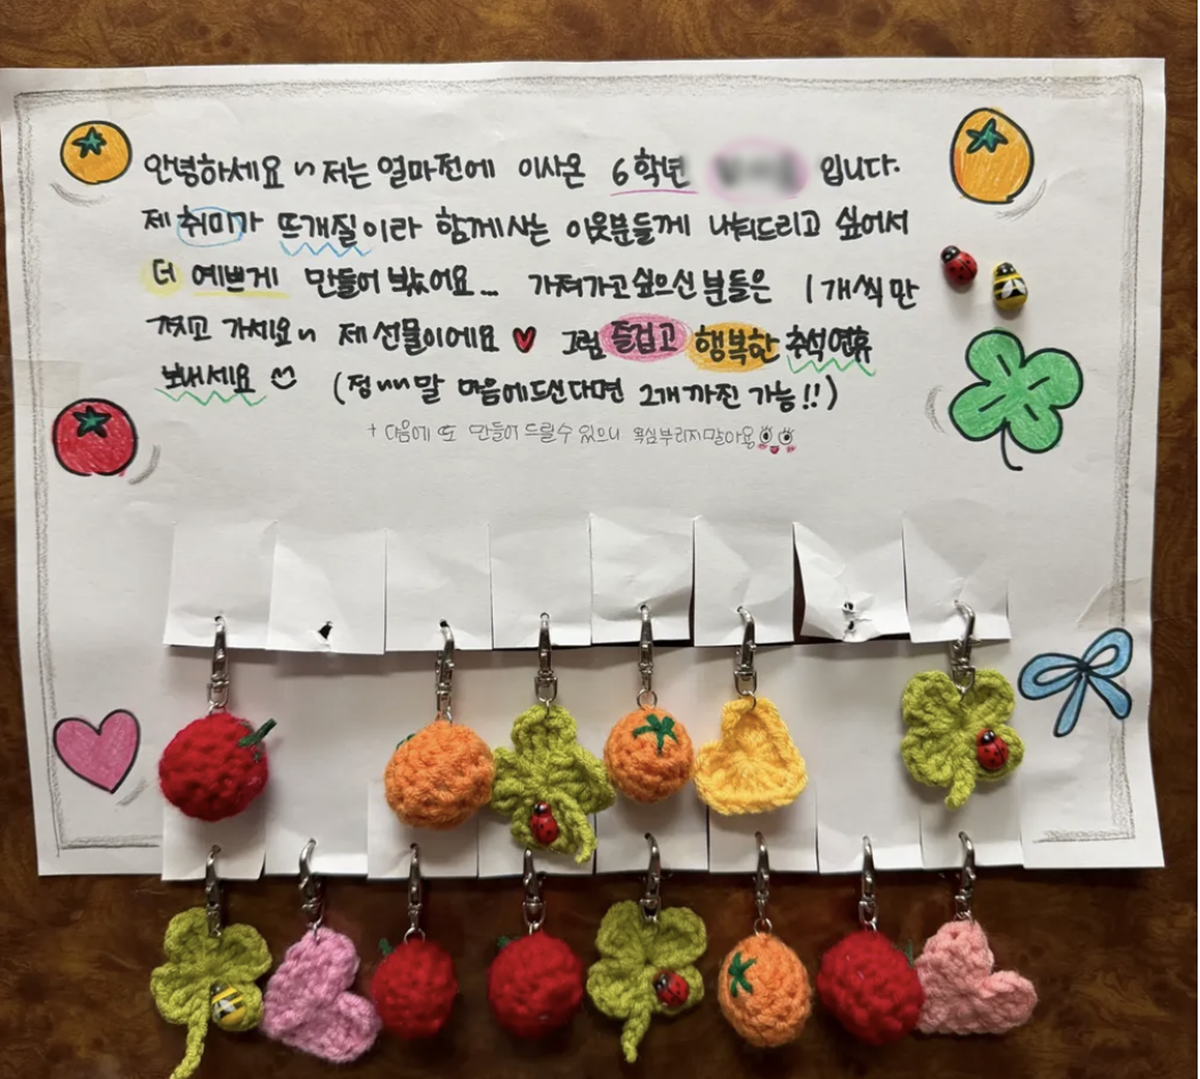 안녕하세요~ 저는 얼마전에 이사온 6학년 입니다.
제 취미가 뜨개질이라 함께사는 이웃분들께 나눠드리고 싶어서
더 예쁘게 만들어 봤어요... 가져가고싶으신분들은 1개씩만
가지고 가세요~ 제 선물이에요 ♥ 그럼 즐겁고 행복한 추석연휴
보내세요 (정~~말 마음에드신다면 2개까진 가능!!)
+ 다음에 또 만들어 드릴수 있으니 욕심부리지말아용